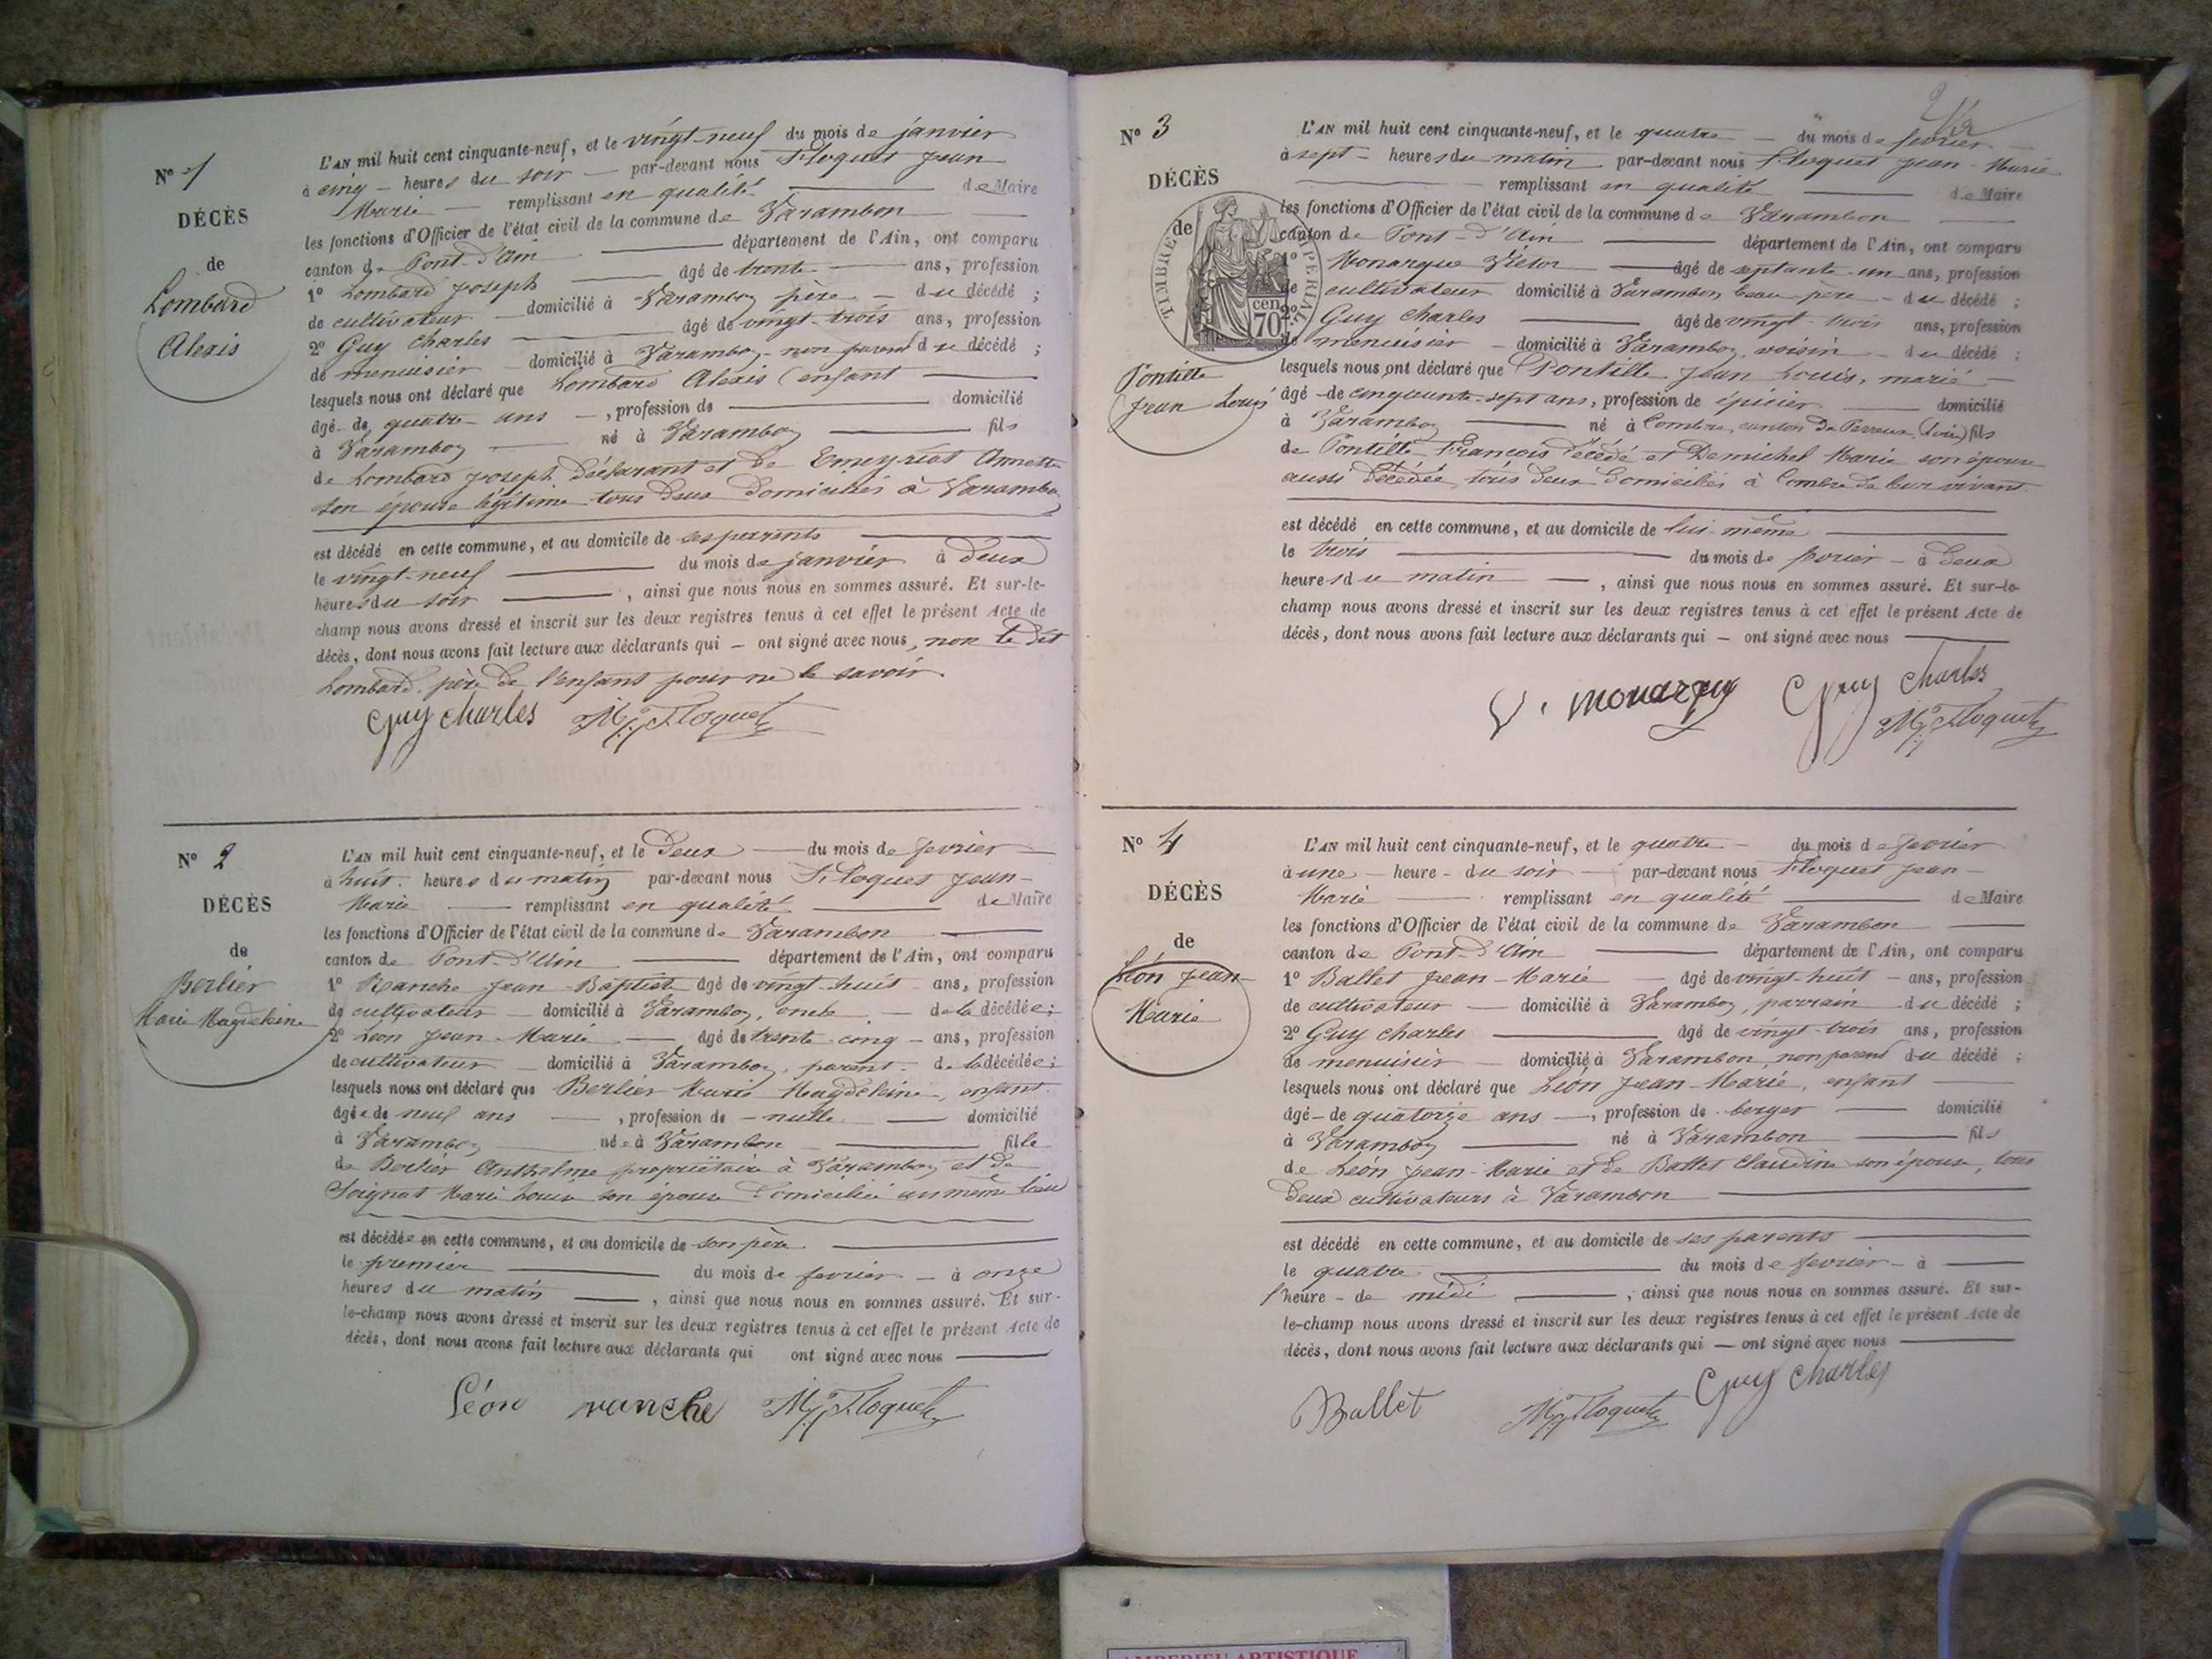 N° 1
DÉCÈS
de
Lombard
Alexis
L'AN mil huit cent cinquante-neuf, et le vingt-neuf du mois de janvier
à cinq heures du soir par-devant nous Floquet Jean
Marie remplissant en qualité de Maire
les fonctions d'Officier de l'état civil de la commune de Varambon
canton de Pont-d'Ain département de l'Ain, ont comparu
1° Lombard Joseph âgé de trente ans, profession
de cultivateur domicilié à Varambon père du décédé ;
2° Guy Charles âgé de vingt-trois ans, profession
de menuisier domicilié à Varambon non parent du décédé ;
lesquels nous ont déclaré que Lombard Alexis (enfant
âgé de quatre ans , profession de domicilié
à Varambon né à Varambon fils
de Lombard Joseph Déclarant et de Emeyriat Annette
son épouse légitime tous deux domiciliés à Varambon
est décédé en cette commune, et au domicile de ses parrents
le vingt-neuf du mois de janvier à deux
heures du soir , ainsi que nous nous en sommes assuré. Et sur-le-
champ nous avons dressé et inscrit sur les deux registres tenus à cet effet le présent Acte de
décès, dont nous avons fait lecture aux déclarants qui — ont signé avec nous, non le dit
Lombard père de l'enfant pour ne le savoir.
Guy Charles Floquet
N° 2
DÉCÈS
de
Berlier
Marie Magdeleine
L'AN mil huit cent cinquante-neuf, et le deux du mois de fevrier
à huit heures du matin par-devant nous Floquet Jean-
Marie remplissant en qualité de Maire
les fonctions d'Officier de l'état civil de la commune de Varambon
canton de Pont-d'Ain département de l'Ain, ont comparu
1° Ranche Jean-Baptist âgé de vingt-huit ans, profession
de cultivateur domicilié à Varambon, oncle de la décédée ;
2° Léon Jean-Marie âgé de trente-cinq ans, profession
de cultivateur domicilié à Varambon, parent de la décédée ;
lesquels nous ont déclaré que Berlier Marie Magdeleine, enfant
âgée de neuf ans , profession de nulle domicilié
à Varambon née à Varambon fille
de Berlier Anthelme propriétaire à Varambon et de
Soignat Marie Louise son épouse domiciliée au même lieu
est décédée en cette commune, et au domicile de son père
le premier du mois de fevrier à onze
heures du matin , ainsi que nous nous en sommes assuré. Et sur-
le-champ nous avons dressé et inscrit sur les deux registres tenus à cet effet le présent Acte de
décès, dont nous avons fait lecture aux déclarants qui ont signé avec nous
Léon ranche Floquet
N° 3
DÉCÈS
de
TIMBRE IMPERIAL
70 cen
Pontille
Jean Louis
L'AN mil huit cent cinquante-neuf, et le quatre du mois de fevrier
à sept heures du matin par-devant nous Floquet Jean-Marie
remplissant en qualité de Maire
les fonctions d'Officier de l'état civil de la commune de Varambon
canton de Pont-d'Ain département de l'Ain, ont comparu
1° Monarque Victor âgé de septante-un ans, profession
de cultivateur domicilié à Varambon beau-père du décédé ;
2° Guy Charles âgé de vingt-trois ans, profession
de menuisier domicilié à Varambon, voisin du décédé ;
lesquels nous ont déclaré que Pontille Jean Louis, marié
âgé de cinquante-sept ans, profession de épicier domicilié
à Varambon né à Combre, canton de Perreux (Loire) fils
de Pontille François décédé et Demichel Marie son épouse
aussi décédée, tous deux domiciliés à Combre de leur vivant
est décédé en cette commune, et au domicile de lui-même
le trois du mois de fevrier à deux
heures du matin , ainsi que nous nous en sommes assuré. Et sur-le-
champ nous avons dressé et inscrit sur les deux registres tenus à cet effet le présent Acte de
décès, dont nous avons fait lecture aux déclarants qui — ont signé avec nous
V. monarque Guy Charles
Floquet
N° 4
DÉCÈS
de
Léon Jean-
Marie
L'AN mil huit cent cinquante-neuf, et le quatre du mois de fevrier
à une heure du soir par-devant nous Floquet Jean-
Marie remplissant en qualité de Maire
les fonctions d'Officier de l'état civil de la commune de Varambon
canton de Pont-d'Ain département de l'Ain, ont comparu
1° Ballet Jean-Marie âgé de vingt-huit ans, profession
de cultivateur domicilié à Varambon, parrain du décédé ;
2° Guy Charles âgé de vingt-trois ans, profession
de menuisier domicilié à Varambon, non parent du décédé ;
lesquels nous ont déclaré que Léon Jean-Marie, enfant
âgé de quatorze ans , profession de berger domicilié
à Varambon né à Varambon fils
de Léon Jean-Marie et de Ballet Claudine son épouse, tous
deux cultivateurs à Varambon
est décédé en cette commune, et au domicile de ses parents
le quatre du mois de fevrier à
l'heure de midi , ainsi que nous nous en sommes assuré. Et sur-
le-champ nous avons dressé et inscrit sur les deux registres tenus à cet effet le présent Acte de
décès, dont nous avons fait lecture aux déclarants qui — ont signé avec nous
Ballet Floquet Guy Charles
AMBERIEU ARTISTIQUE